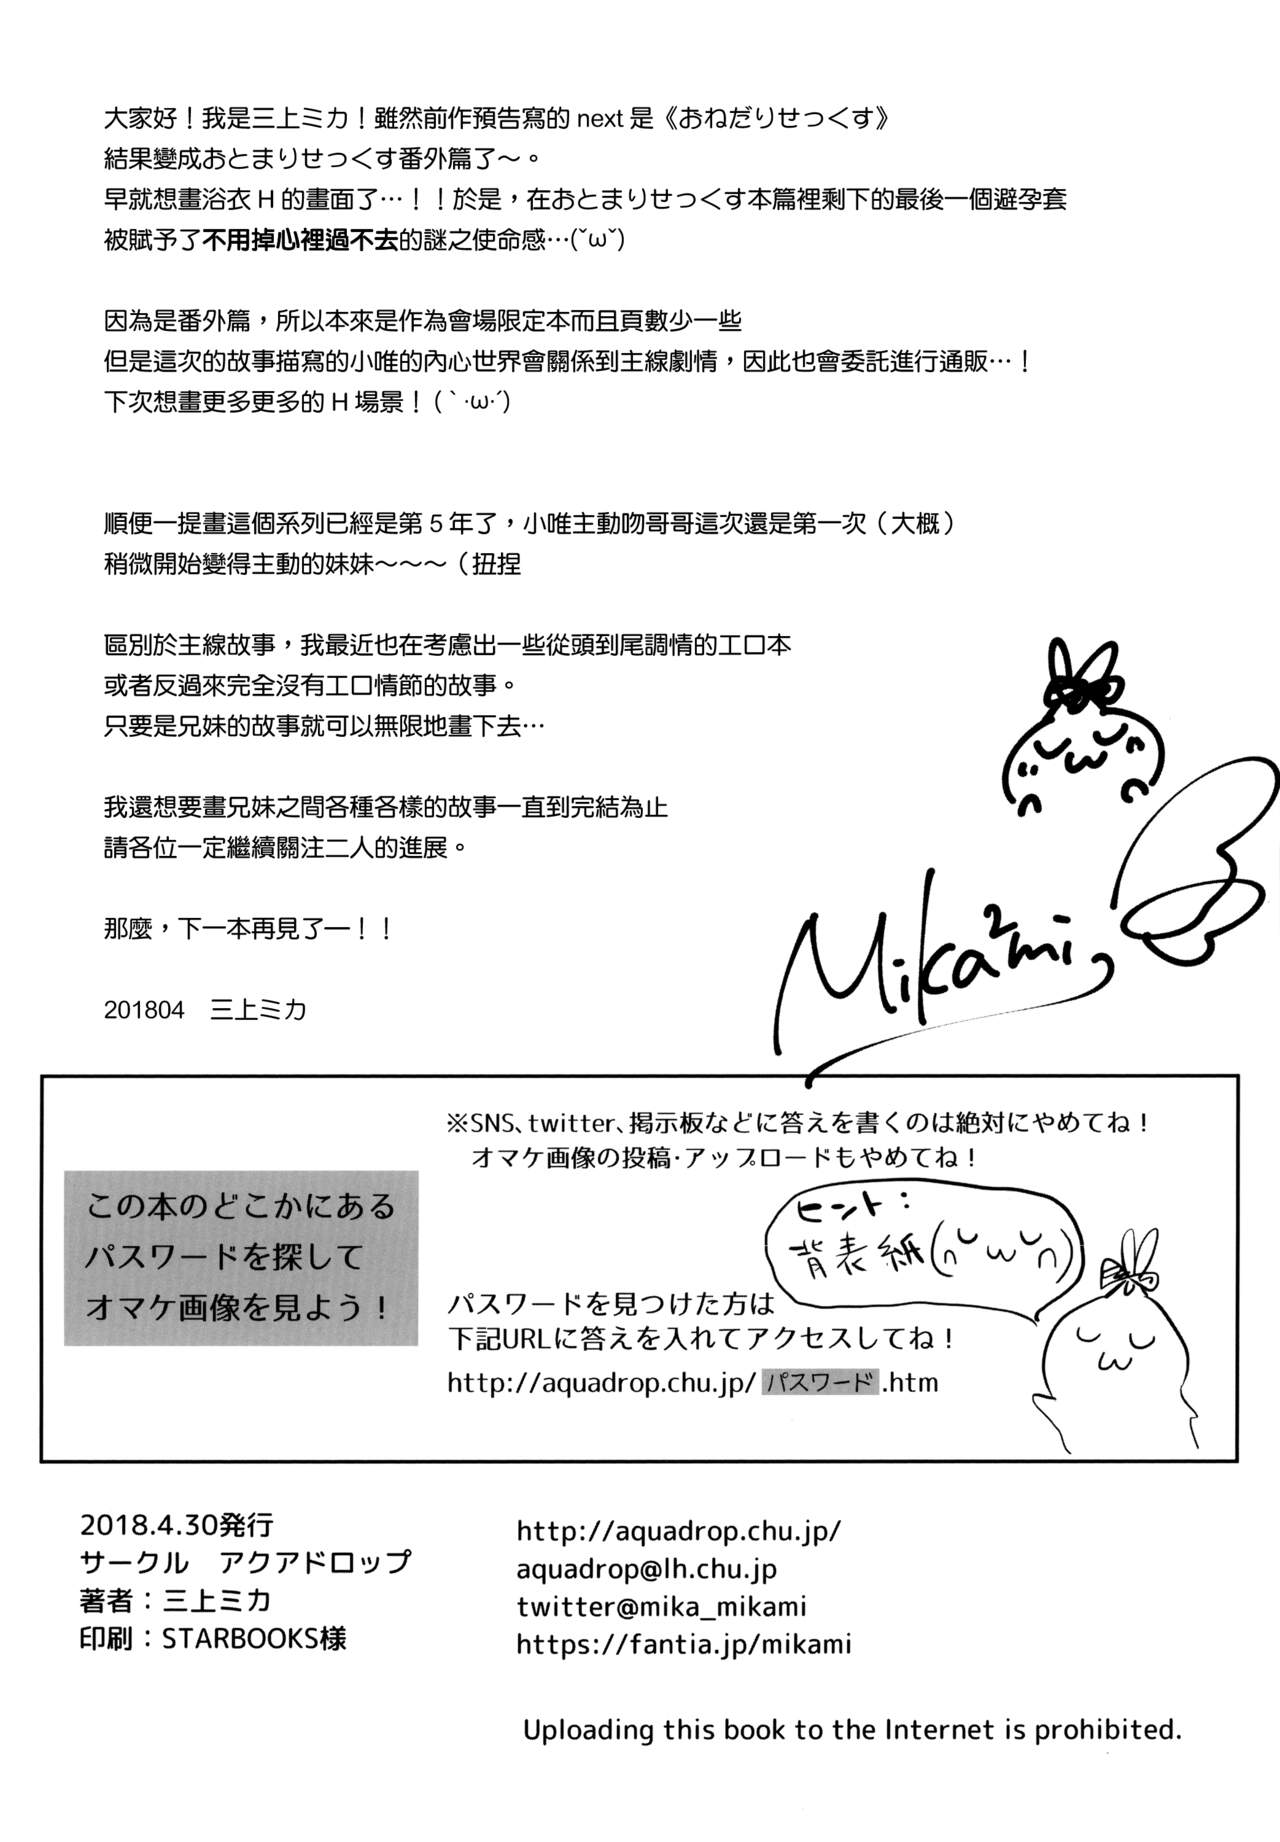 大家好！我是三上ミカ！雖然前作預告寫的 next 是《おねだりせっくす》
結果變成おとまりせっくす番外篇了～。
早就想畫浴衣 H 的畫面了…！！於是，在おとまりせっくす本篇裡剩下的最後一個避孕套
被賦予了不用掉心裡過不去的謎之使命感…(˘ω˘)
因為是番外篇，所以本來是作為會場限定本而且頁數少一些
但是這次的故事描寫的小唯的內心世界會關係到主線劇情，因此也會委託進行通販…！
下次想畫更多更多的 H 場景！(｀·ω·´)
順便一提畫這個系列已經是第 5 年了，小唯主動吻哥哥這次還是第一次（大概）
稍微開始變得主動的妹妹～～～（扭捏
區別於主線故事，我最近也在考慮出一些從頭到尾調情的工口本
或者反過來完全沒有工口情節的故事。
只要是兄妹的故事就可以無限地畫下去…
我還想要畫兄妹之間各種各樣的故事一直到完結為止
請各位一定繼續關注二人的進展。
那麼，下一本再見了一！！
201804　三上ミカ
Mika²mi
この本のどこかにある
パスワードを探して
オマケ画像を見よう！
※SNS、twitter、掲示板などに答えを書くのは絶対にやめてね！
オマケ画像の投稿・アップロードもやめてね！
ヒント：
背表紙(∩˘ω˘∩)
パスワードを見つけた方は
下記URLに答えを入れてアクセスしてね！
http://aquadrop.chu.jp/ パスワード .htm
2018.4.30発行
サークル　アクアドロップ
著者：三上ミカ
印刷：STARBOOKS様
http://aquadrop.chu.jp/
aquadrop@lh.chu.jp
twitter@mika_mikami
https://fantia.jp/mikami
Uploading this book to the Internet is prohibited.